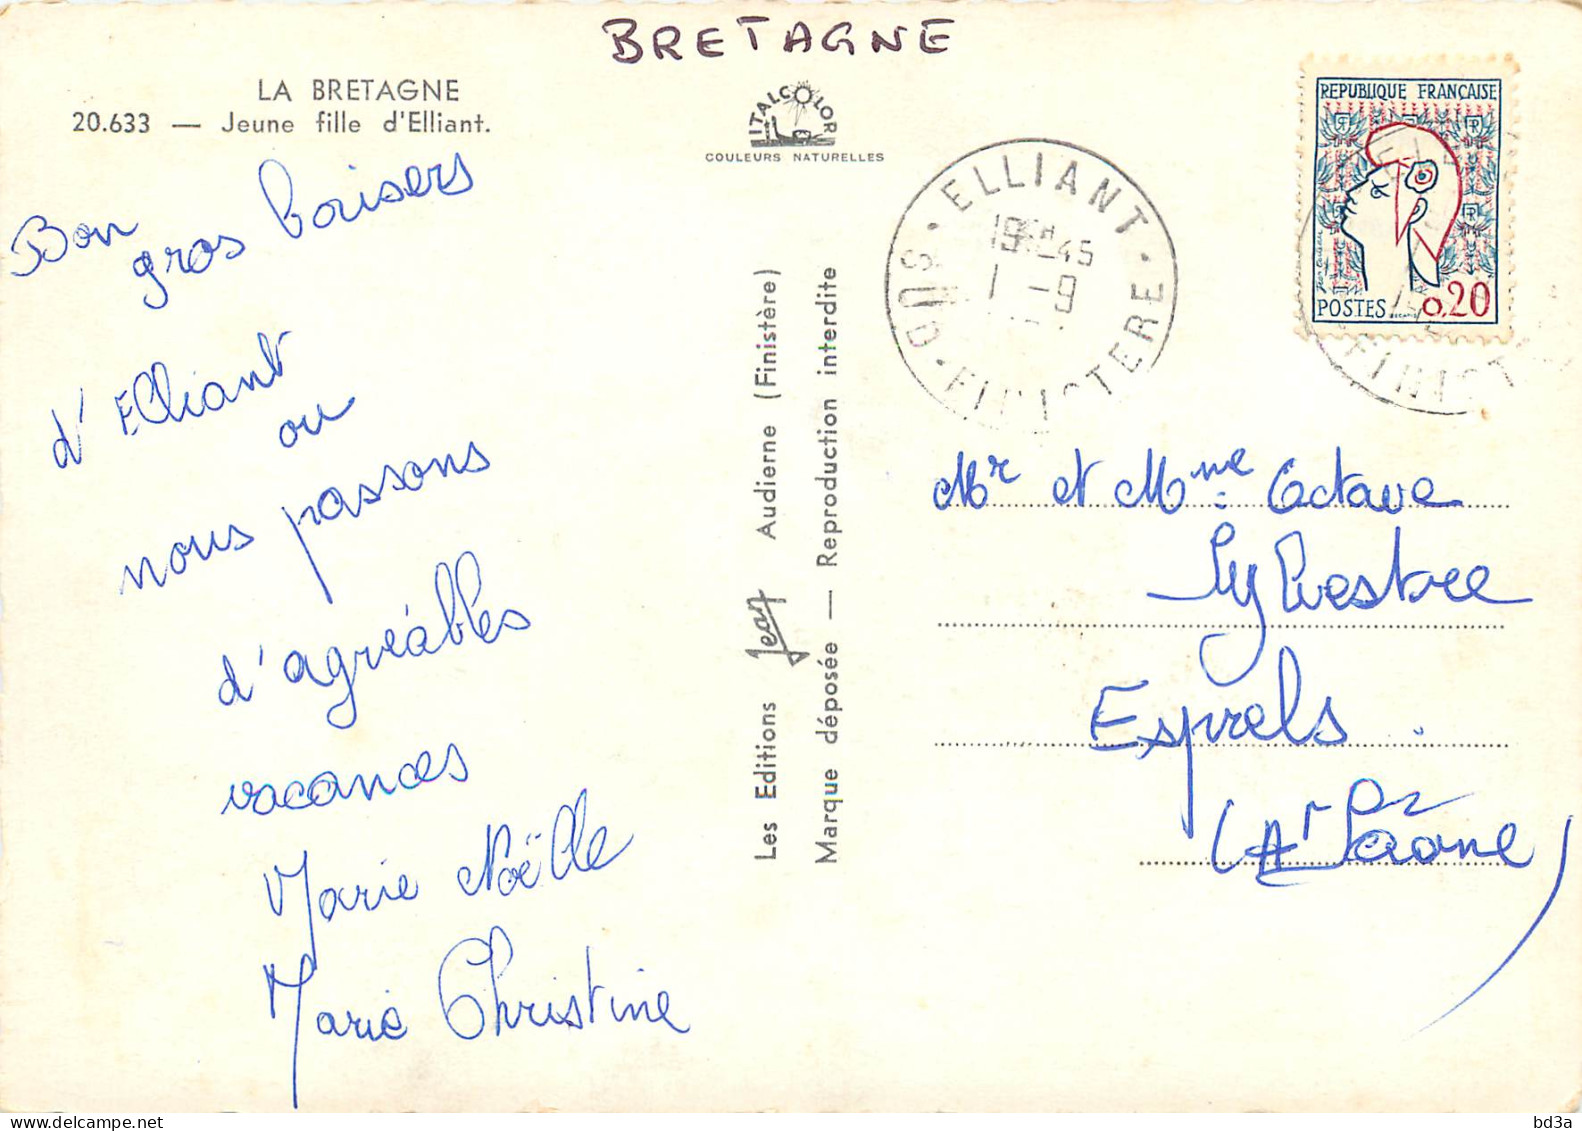 BRETAGNE
LA BRETAGNE
20.633 — Jeune fille d'Elliant.
ITALCOLOR
COULEURS NATURELLES
Bon
gros baisers
d'Elliant
ou
nous passons
d'agréables
vacances
Marie Noëlle
Marie Christine
Les Editions Jean Audierne (Finistère)
Marque déposée — Reproduction interdite
ELLIANT
19H45
1 - 9
SUD
FINISTERE
REPUBLIQUE FRANÇAISE
POSTES 0,20
FINIST
Mr et Mme Octave
Sylvestre
Esprels.
(Hte Saône)
bd3a